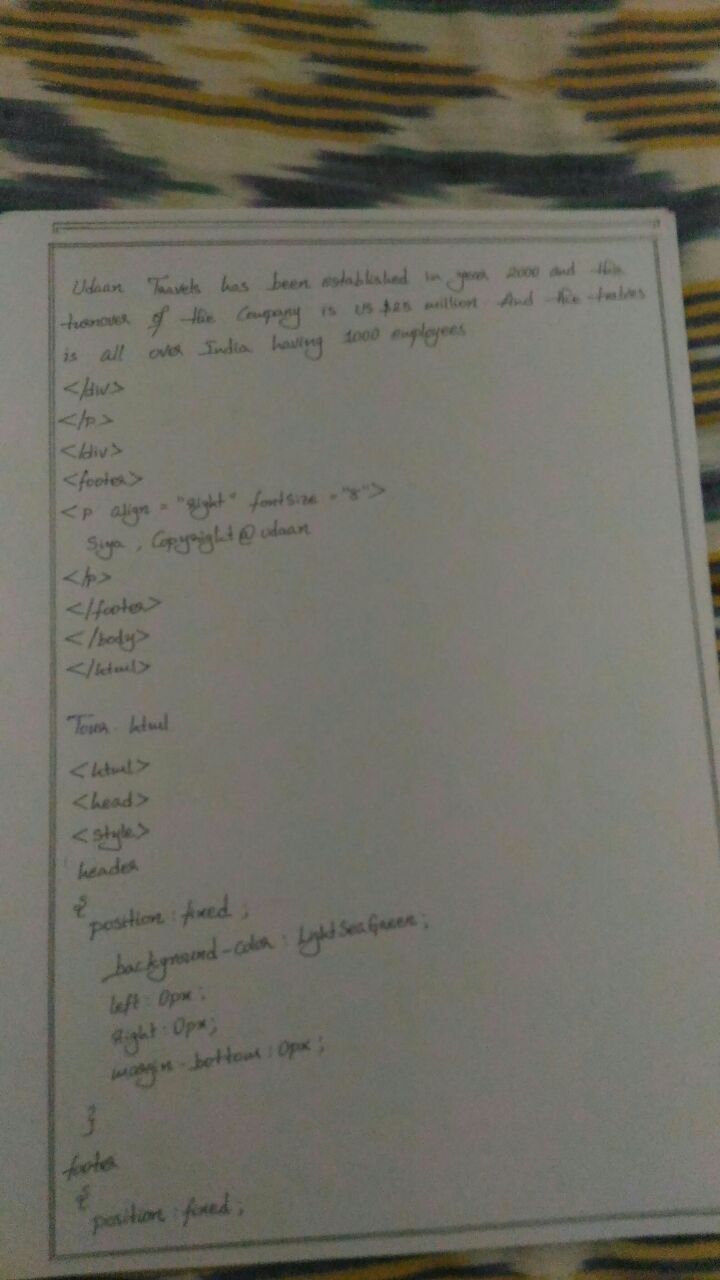 Udaan Travels has been established in year 2000 and the
turnover of the Company is US $25 million. And the
is all over India having 1000 employees
</div>
</p>
</div>
<footer>
<p align = "right" fontsize = "8">
Siya, Copyright @ udaan
</p>
</footer>
</body>
</html>
Tour. html
<html>
<head>
<style>
header
{
position : fixed ;
background-color : LightSeaGreen ;
left : 0px ;
right : 0px ;
margin-bottom : 0px ;
}
footer
{
position : fixed ;